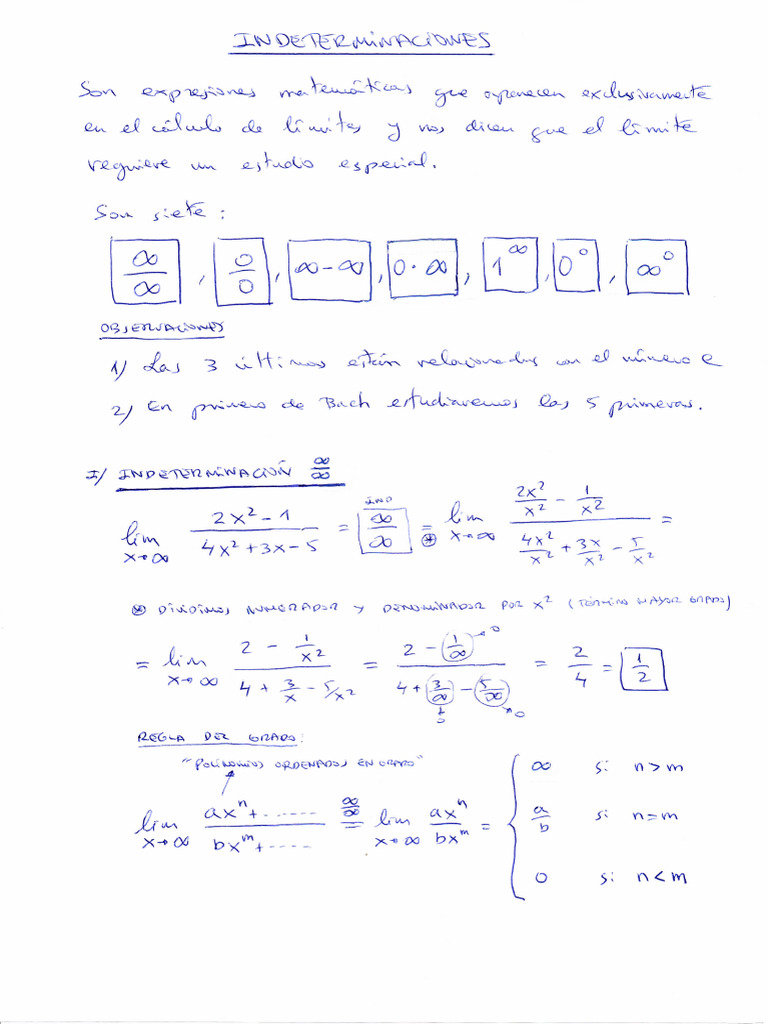 INDETERMINACIONES
Son expresiones matemáticas que aparecen exclusivamente
en el cálculo de límites y nos dicen que el límite
requiere un estudio especial.
Son siete :
∞/∞ , 0/0 , ∞-∞ , 0·∞ , 1^∞ , 0^0 , ∞^0
OBSERVACIONES
1) Las 3 últimas están relacionadas con el número e
2) En primero de Bach estudiaremos las 5 primeras.
I/ INDETERMINACIÓN ∞/∞
lim x→∞ (2x²-1)/(4x²+3x-5) = IND ∞/∞ =⊛ lim x→∞ (2x²/x² - 1/x²)/(4x²/x² + 3x/x² - 5/x²) =
⊛ DIVIDIMOS NUMERADOR Y DENOMINADOR POR x² (TÉRMINO MAYOR GRADO)
= lim x→∞ (2 - 1/x²)/(4 + 3/x - 5/x²) = (2 - (1/∞)→0)/(4 + (3/∞)→0 - (5/∞)→0) = 2/4 = 1/2
REGLA DEL GRADO:
"POLINOMIOS ORDENADOS EN GRADO"
lim x→∞ (axⁿ+......)/(bxᵐ+.....) =^(∞/∞) lim x→∞ axⁿ/bxᵐ = { ∞ si n>m
a/b si n=m
0 si n<m